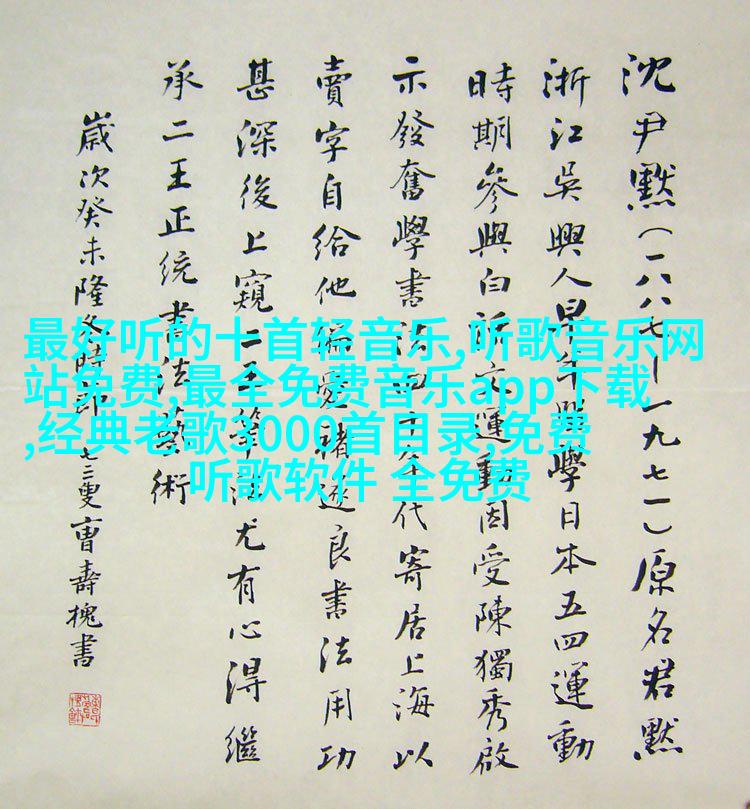 沈尹默(一八八七—一九七一)原名君默
浙江吳興人早年學日本五四運動
時期參與白話文運動因受陳獨秀啟
示發奮學書法四十年代寄居上海以
賣字自給他偏愛褚遂良書法用功
甚深後上窺二王筆法尤有心得繼
承二王正统書法藝術
歲次癸未隆冬時節七三叟曹壽槐書
最好听的十首轻音乐,听歌音乐网
站免费,最全免费音乐app下载
,经典老歌3000首目录,免费
听歌软件 全免费